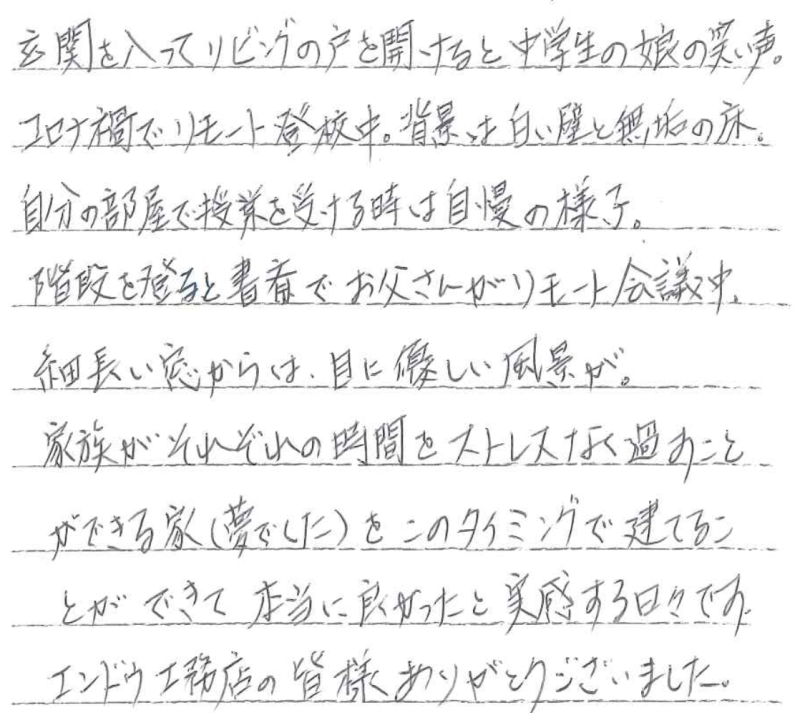 玄関を入ってリビングの戸を開けると中学生の娘の笑い声。
コロナ禍でリモート登校中。背景は白い壁と無垢の床。
自分の部屋で授業を受ける時は自慢の様子。
階段を登ると書斎でお父さんがリモート会議中。
細長い窓からは、目に優しい風景が。
家族がそれぞれの時間をストレスなく過すこと
ができる家(夢でした)をこのタイミングで建てるこ
とができて本当に良かったと実感する日々です。
エンドウ工務店の皆様ありがとうございました。